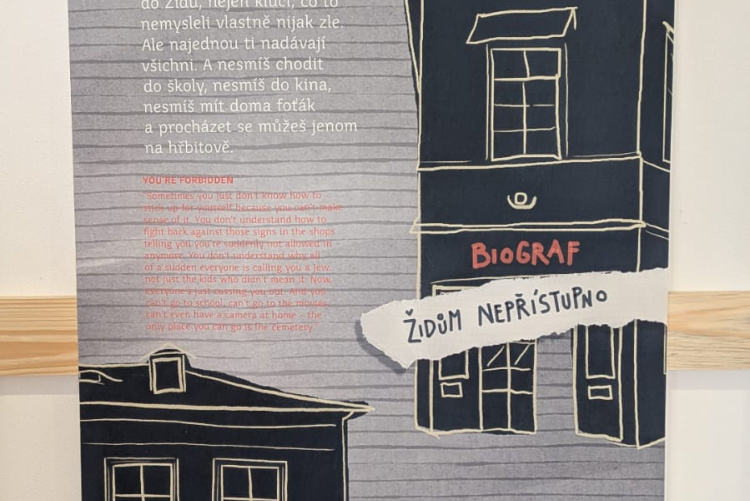 do Židů, nejen kluci, co to
nemysleli vlastně nijak zle.
Ale najednou ti nadávají
všichni. A nesmíš chodit
do školy, nesmíš do kina,
nesmíš mít doma foťák
a procházet se můžeš jenom
na hřbitově.
YOU'RE FORBIDDEN
"Sometimes you just don't know how to
stick up for yourself because you can't make
sense of it. You don't understand how to
fight back against those signs in the shops
telling you you're suddenly not allowed in
anymore. You don't understand why all
of a sudden everyone is calling you a Jew,
not just the kids who didn't mean it. Now
everyone's just cussing you out. And you
can't go to school, can't go to the movies,
can't even have a camera at home – the
only place you can go is the cemetery."
BIOGRAF
ŽIDŮM NEPŘÍSTUPNO